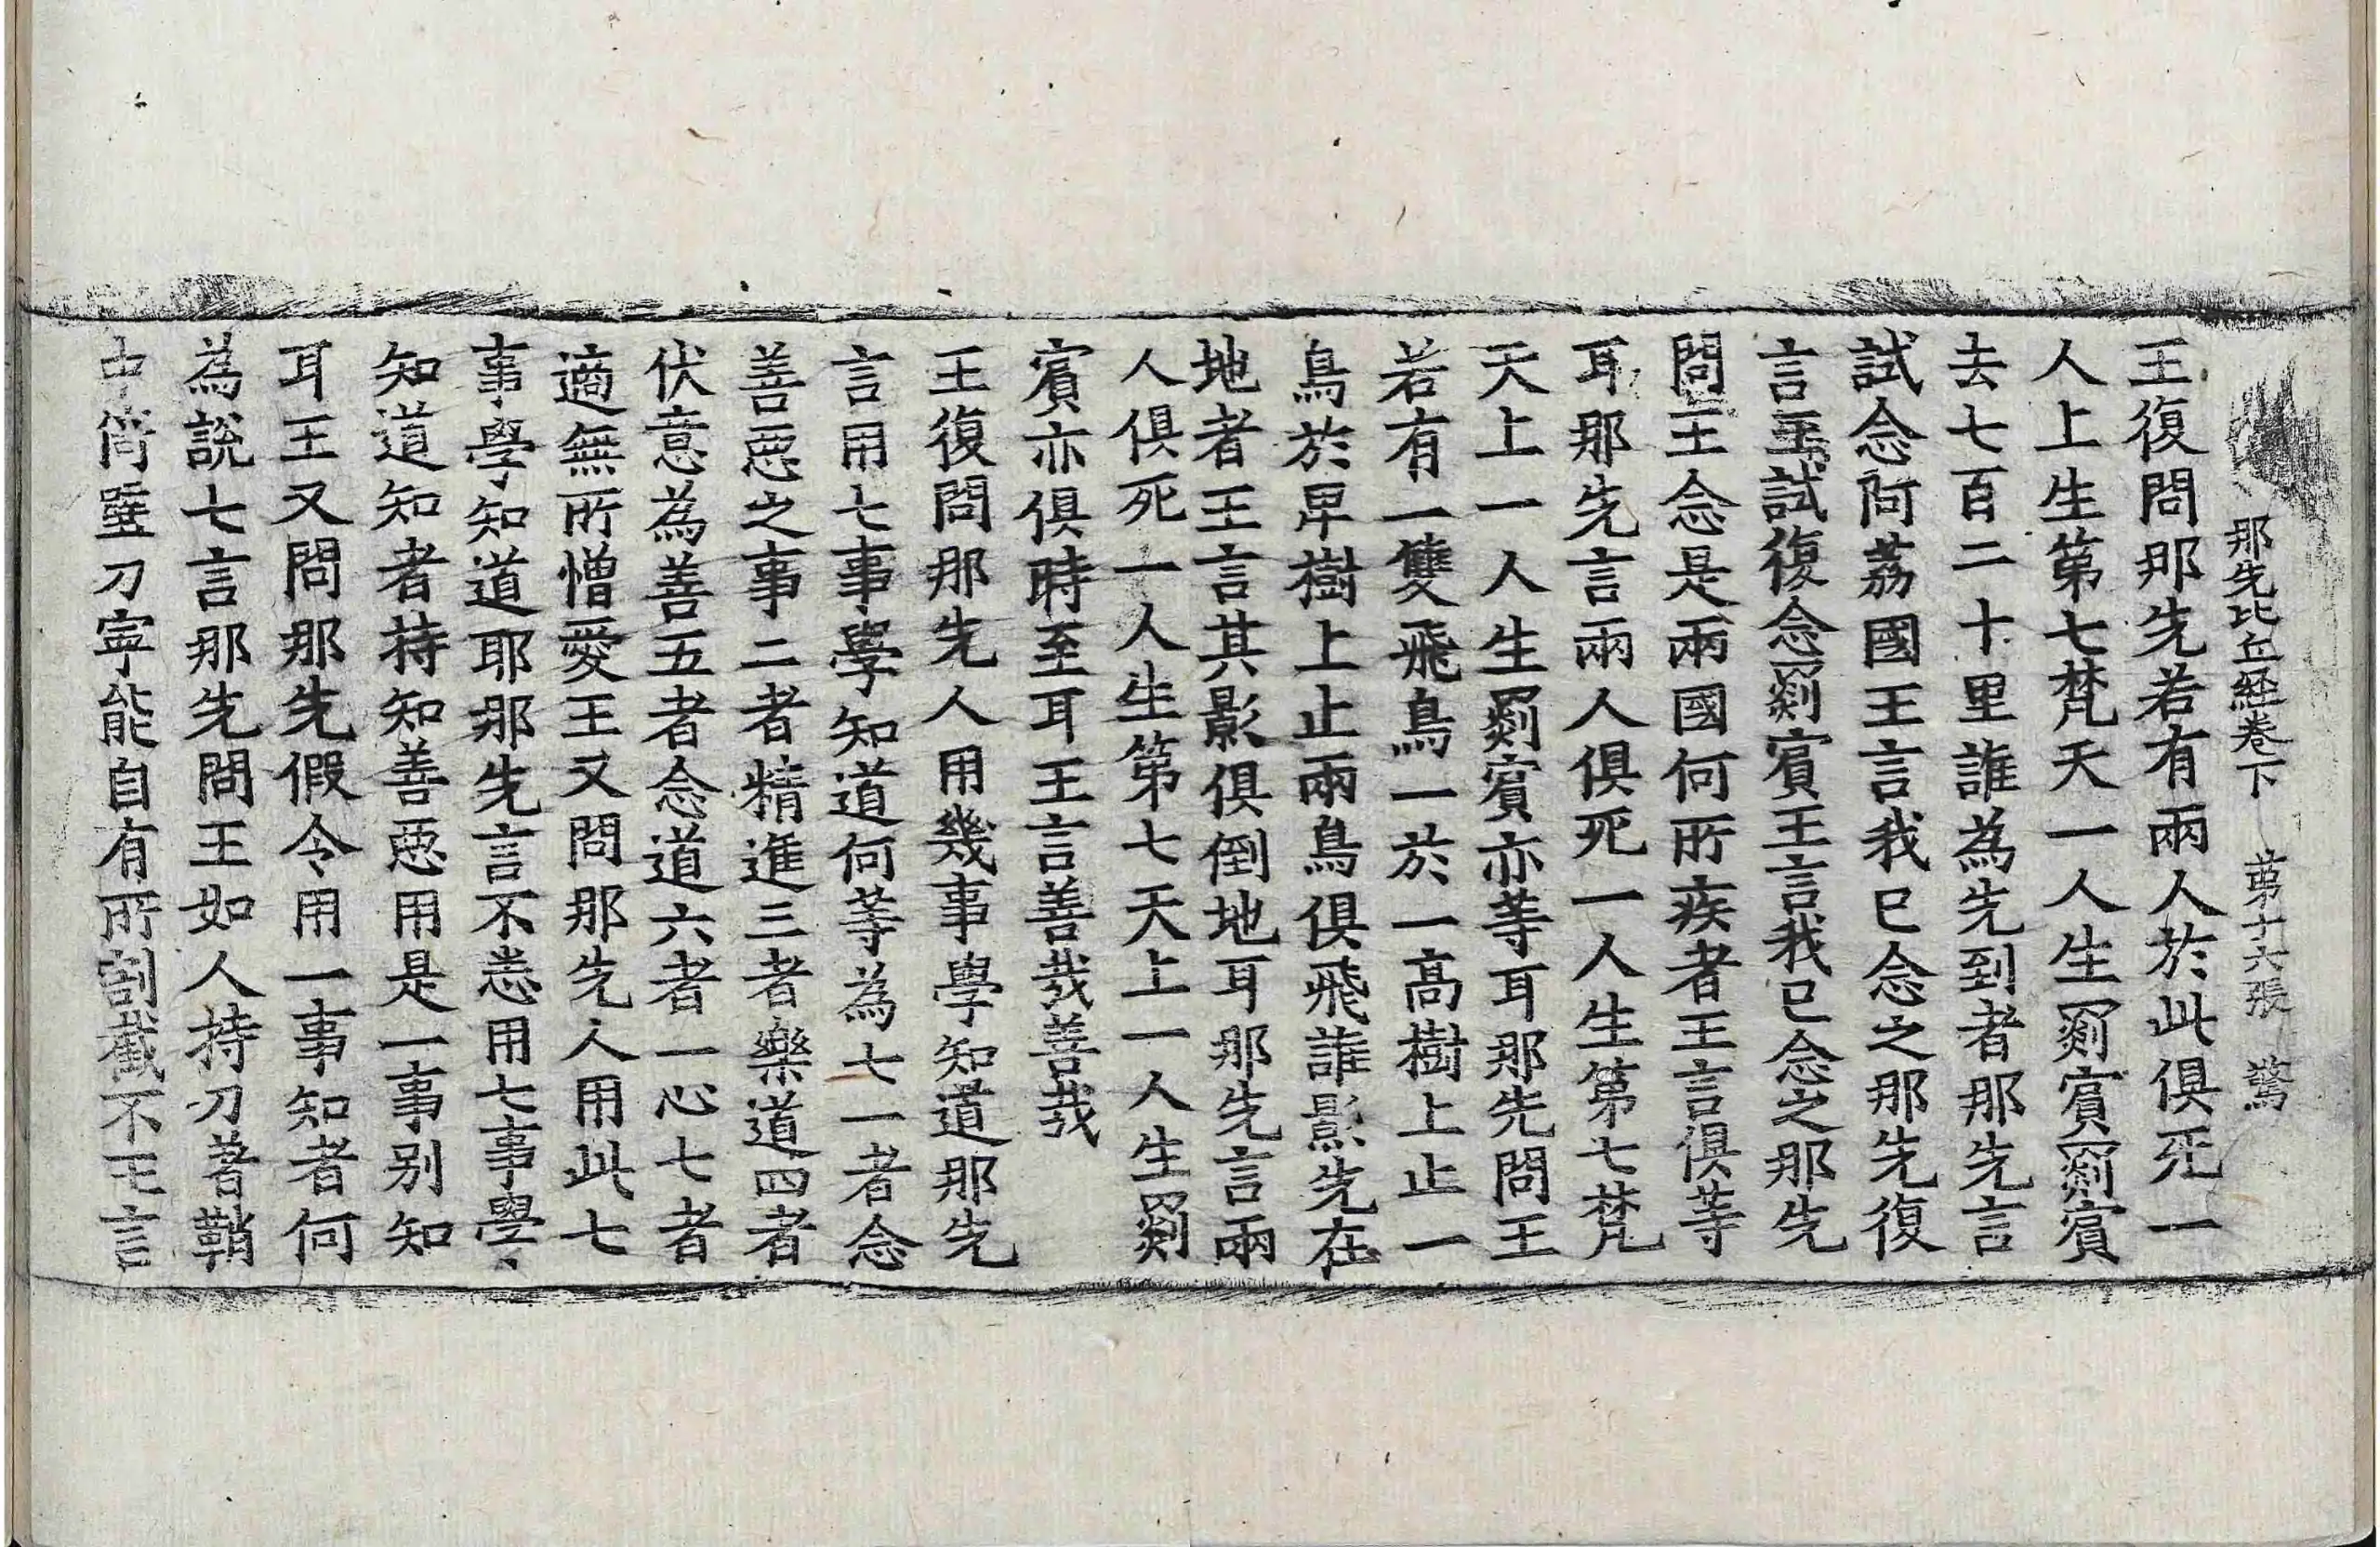 那先比丘経卷下　苐十六張　驚
王復問那先若有兩人於此俱死一
人上生第七梵天一人生罽賔罽賔
去七百二十里誰為先到者那先言
試念阿荔國王言我已念之那先復
言王試復念罽賔王言我已念之那先
問王念是兩國何所疾者王言俱等
耳那先言兩人俱死一人生第七梵
天上一人生罽賔亦等耳那先問王
若有一雙飛鳥一於一高樹上止一
鳥於卑樹上止兩鳥俱飛誰影先在
地者王言其影俱倒地耳那先言兩
人俱死一人生第七天上一人生罽
賔亦俱時至耳王言善哉善哉
王復問那先人用幾事學知道那先
言用七事學知道何等為七一者念
善惡之事二者精進三者樂道四者
伏意為善五者念道六者一心七者
適無所憎愛王又問那先人用此七
事學知道耶那先言不悉用七事學
知道知者持知善惡用是一事別知
耳王又問那先假令用一事知者何
為說七言那先問王如人持刀著鞘
中倚壁刀寧能自有所割截不王言